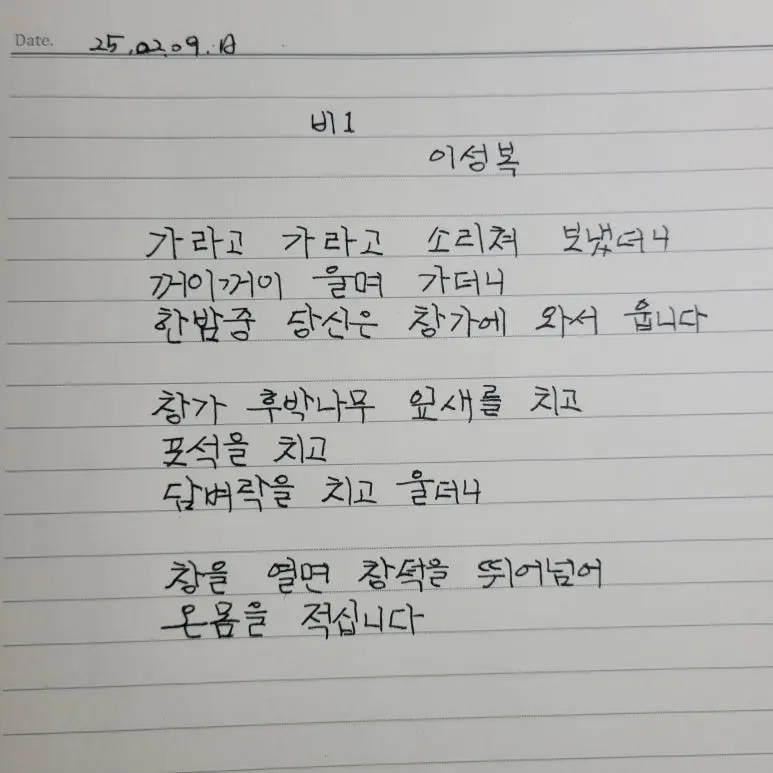 Date. 25.02.09.日
비1
이성복
가라고 가라고 소리쳐 보냈더니
꺼이꺼이 울며 가더니
한밤중 당신은 창가에 와서 웁니다
창가 후박나무 잎새를 치고
포석을 치고
담벼락을 치고 울더니
창을 열면 창턱을 뛰어넘어
온몸을 적십니다